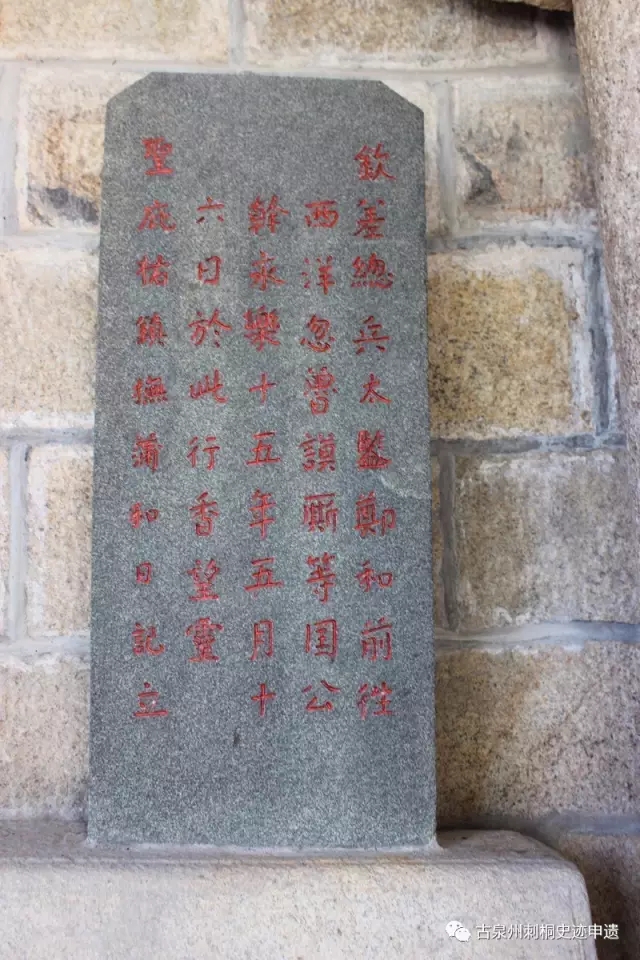 欽差總兵太監鄭和前往
西洋忽魯謨厮等国公
幹永樂十五年五月十
六日於此行香望靈
聖庇佑鎮撫蒲和日記立
古泉州刺桐史迹申遗